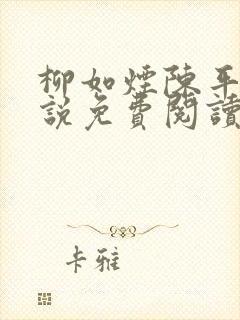 柳如煙陳平
說免費閱讀
卡雅